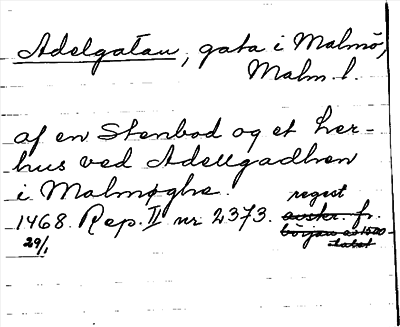 Adelgatan, gata i Malmö,
Malm. l.
af en Stenbod og et her-
hus ved Adellgadhen
i Malmøghe.
regest
1468. Rep. II nr 2373. avskr. fr.
29/1 början av 1500-
talet